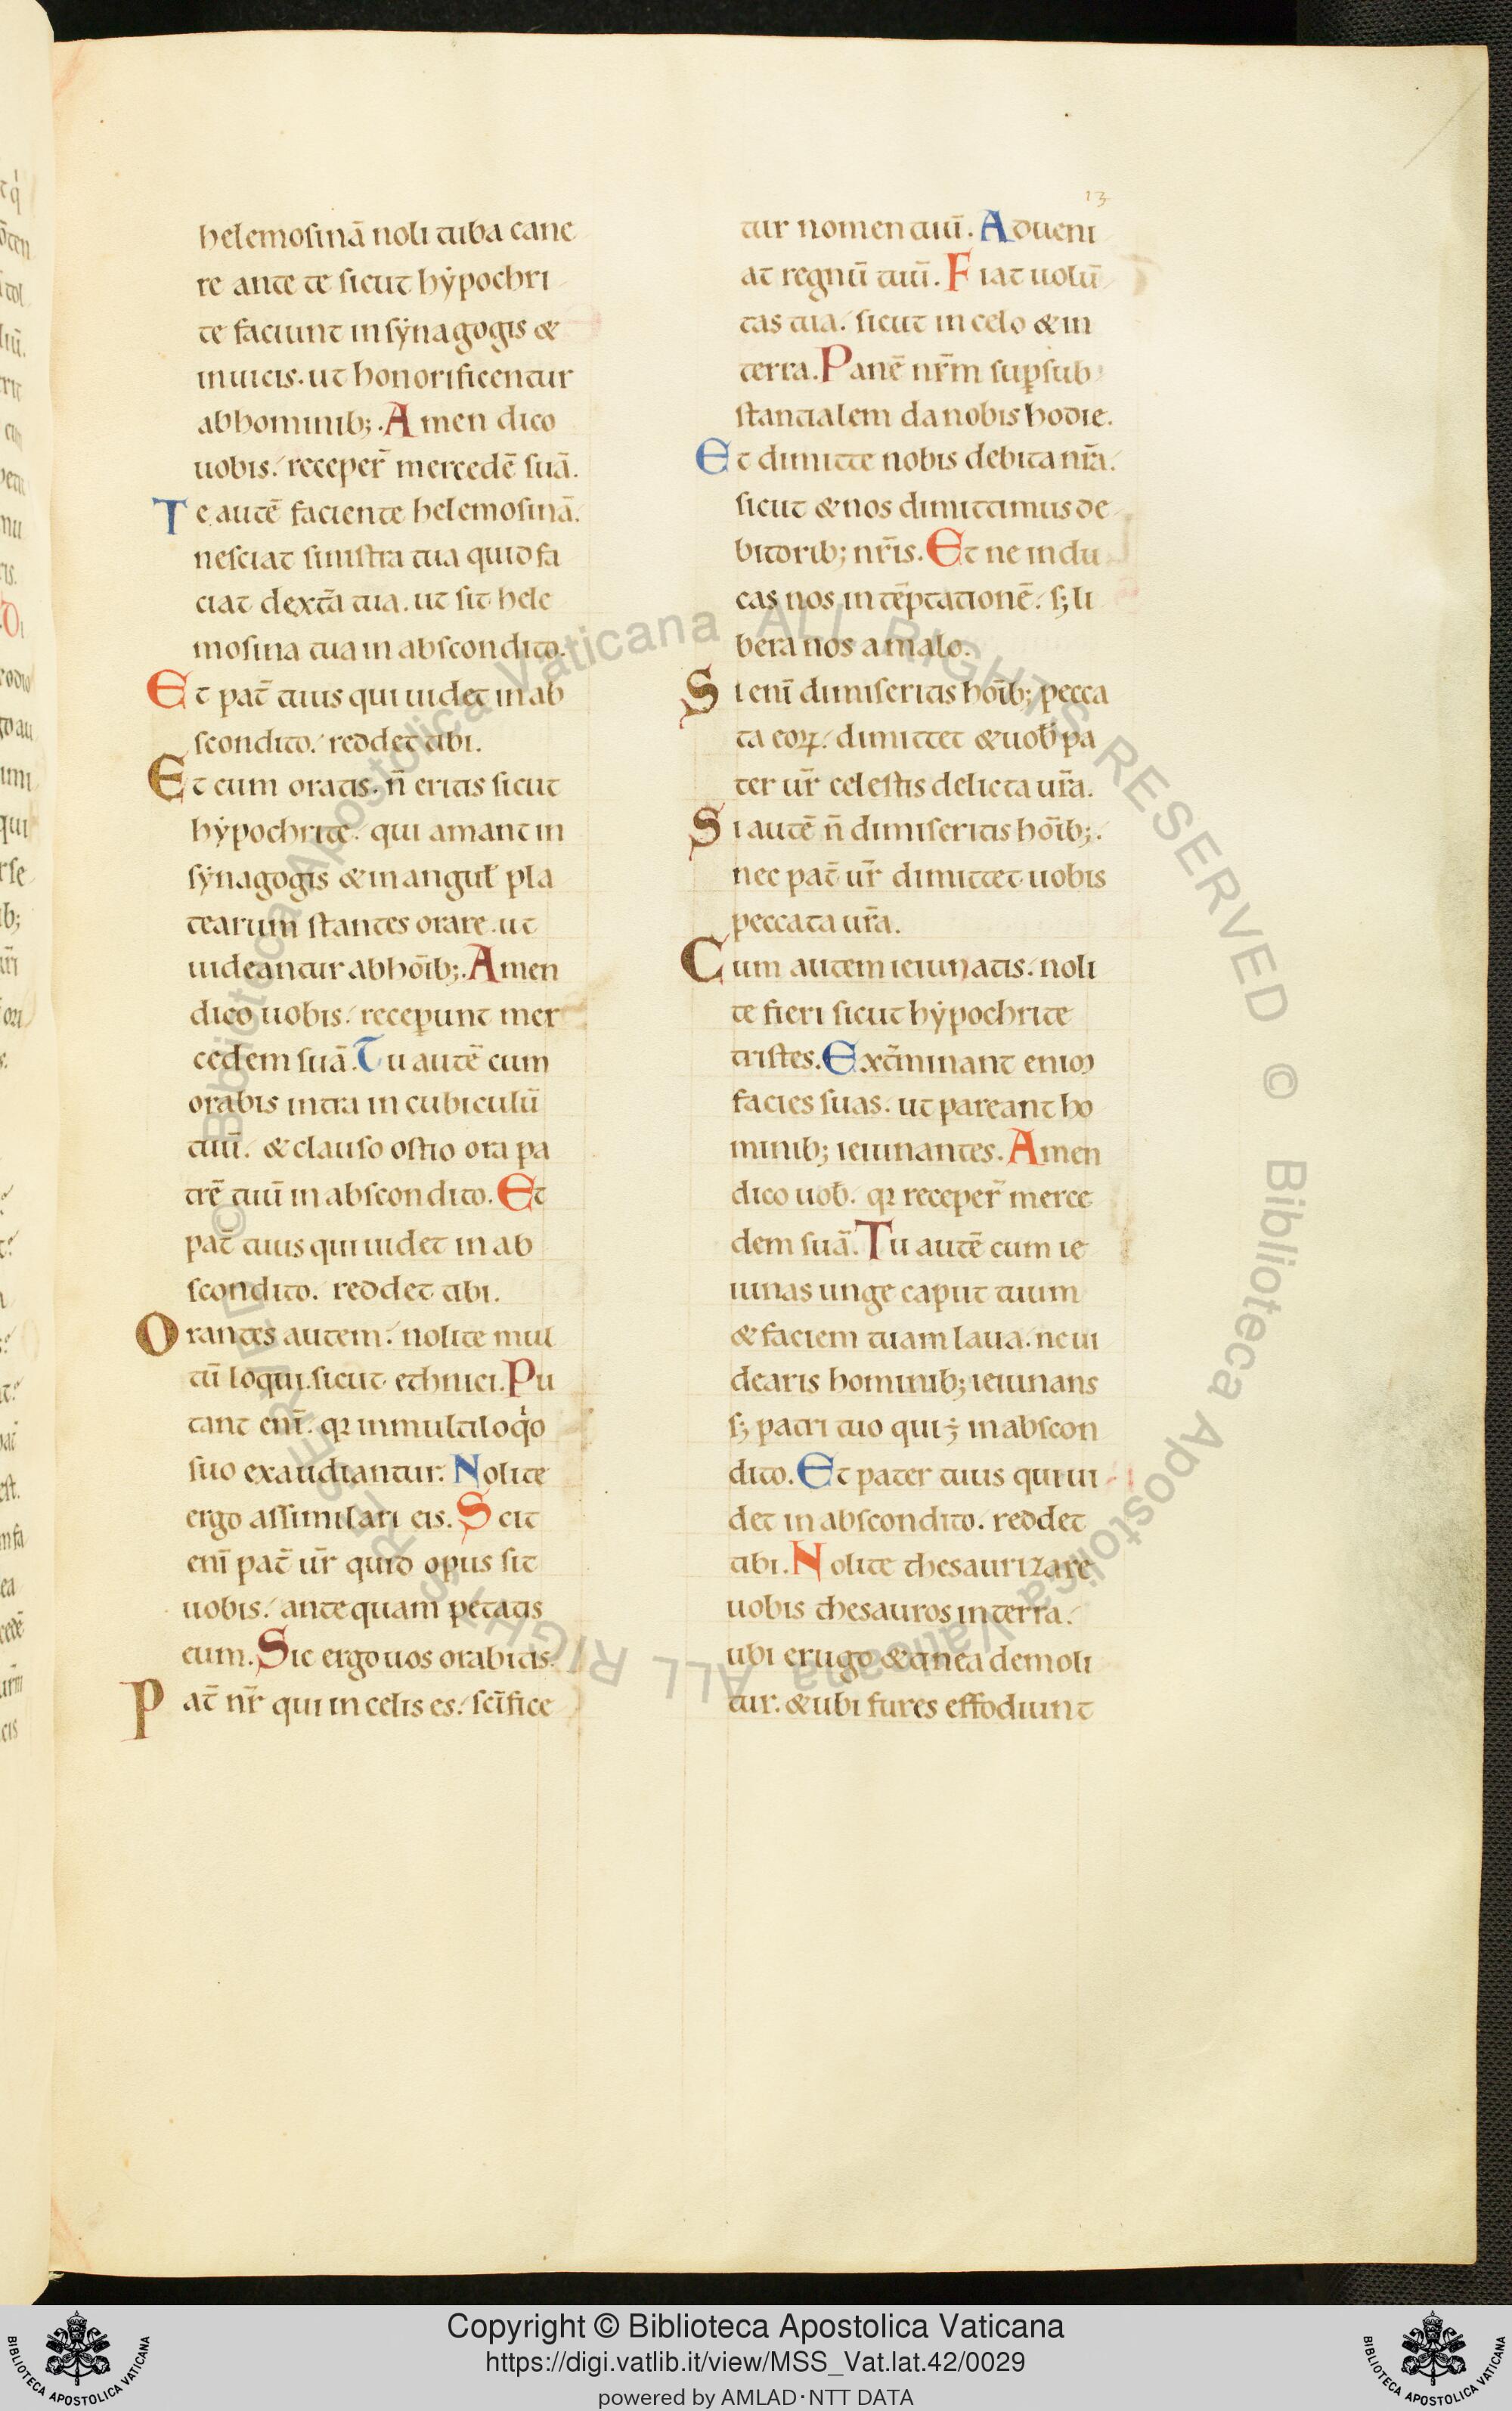 13
helemosinā noli tuba cane
re ante te sicut hẏpochri
te faciunt in sẏnagogis &
in uicis. ut honorificentur
ab hominib;. Amen dico
uobis. receper̄ mercedē suā.
Te autē faciente helemosinā.
nesciat sinistra tua quid fa
ciat dext̄a tua. ut sit hele
mosina tua in abscondito.
Et pat̄ tuus qui uidet in ab
scondito. reddet tibi.
Et cum oratis. n̄ eritis sicut
hẏpochrite. qui amant in
sẏnagogis & in angul̄ pla
tearum stantes orare. ut
uideantur ab hōib;. Amen
dico uobis. receꝑunt mer
cedem suā. Tu autē cum
orabis intra in cubiculū
tuū. & clauso ostio ora pa
trē tuū in abscondito. Et
pat̄ tuus qui uidet in ab
scondito. reddet tibi.
Orantes autem. nolite mul
tū loqui sicut ethnici. Pu
tant enī. qꝛ in multiloqͦo
suo exaudiantur. Nolite
ergo assimilari eis. Scit
enī pat̄ ur̄ quid opus sit
uobis. ante quam petatis
eum. Sic ergo uos orabitis.
Pat̄ nr̄ qui in celis es. scīfice
tur nomen tuū. Adueni
at regnū tuū. Fiat uolū
tas tua. sicut in celo & in
terra. Panē nr̄m suꝑsub
stantialem da nobis hodie.
Et dimitte nobis debita nr̄a.
sicut & nos dimittimus de
bitorib; nr̄is. Et ne indu
cas nos in tēptationē. s; li
bera nos a malo.
Si enī dimiseritis hoīb; pecca
ta eoꝝ. dimittet & uob̄ pa
ter ur̄ celestis delicta ur̄a.
Si autē n̄ dimiseritis hōib;.
nec pat̄ ur̄ dimittet uobis
peccata ur̄a.
Cum autem ieiunatis. noli
te fieri sicut hẏpochrite
tristes. Ext̄minant enim
facies suas. ut pareant ho
minib; ieiunantes. Amen
dico uob̄. qꝛ receper̄ merce
dem suā. Tu autē cum ie
iunas unge caput tuum
& faciem tuam laua. ne ui
dearis hominib; ieiunans
s; patri tuo qui ÷ in abscon
dito. Et pater tuus qui ui
det in abscondito. reddet
tibi. Nolite thesaurizare
uobis thesauros in terra.
ubi erugo & tinea demoli
tur. & ubi fures effodiunt
© Biblioteca Apostolica Vaticana ALL RIGHTS RESERVED © Biblioteca Apostolica Vaticana ALL RIGHTS RESERVED
Copyright © Biblioteca Apostolica Vaticana
https://digi.vatlib.it/view/MSS_Vat.lat.42/0029
powered by AMLAD·NTT DATA
BIBLIOTECA APOSTOLICA VATICANA
BIBLIOTECA APOSTOLICA VATICANA